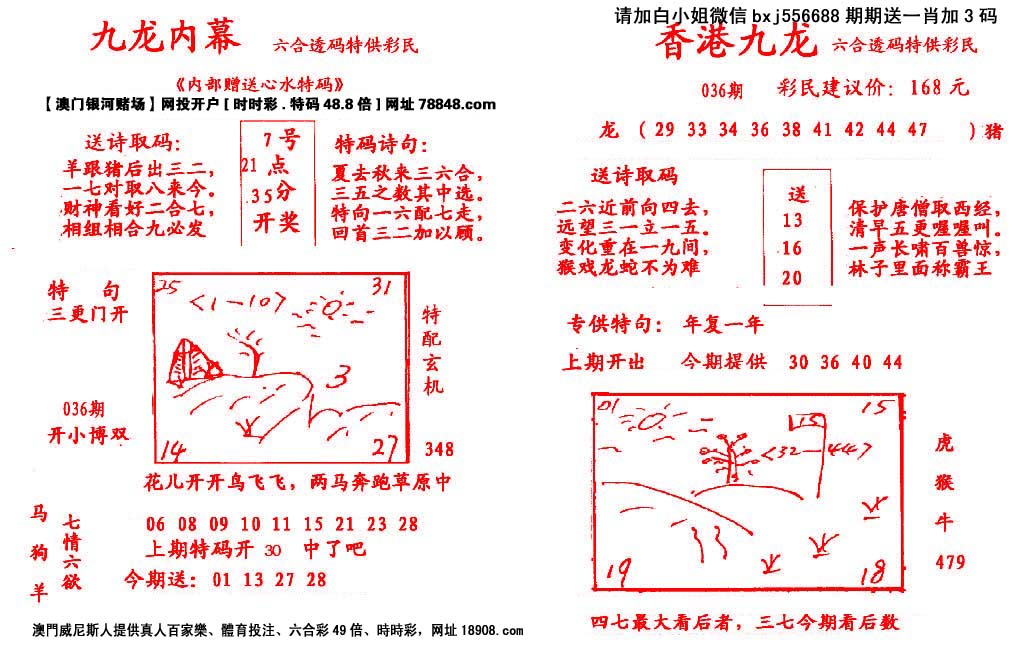 请加白小姐微信 bxj556688 期期送一肖加 3 码
九龙内幕 六合透码特供彩民
《内部赠送心水特码》
【澳门银河赌场】网投开户[时时彩.特码48.8倍]网址78848.com
送诗取码：
羊跟猪后出三二，
一七对取八来今。
财神看好二合七，
相组相合九必发
7号
21点
35分
开奖
特码诗句：
夏去秋来三六合，
三五之数其中选。
特向一六配七走，
回首三二加以顾。
特 句
三更门开
036期
开小博双
25
31
<1-10>
3
14
27
特配玄机
348
花儿开开鸟飞飞，两马奔跑草原中
马
狗
羊
七情六欲
06 08 09 10 11 15 21 23 28
上期特码开 30 中了吧
今期送：01 13 27 28
澳門威尼斯人提供真人百家樂、體育投注、六合彩49倍、時時彩，网址18908.com
香港九龙 六合透码特供彩民
036期 彩民建议价：168元
龙 （29 33 34 36 38 41 42 44 47 ）猪
送诗取码
二六近前向四去，
远望三一立一五。
变化重在一九间，
猴戏龙蛇不为难
送
13
16
20
保护唐僧取西经，
清早五更喔喔叫。
一声长啸百兽惊，
林子里面称霸王
专供特句： 年复一年
上期开出 今期提供 30 36 40 44
01
15
15
<32-44>
19
18
虎
猴
牛
479
四七最大看后者，三七今期看后数